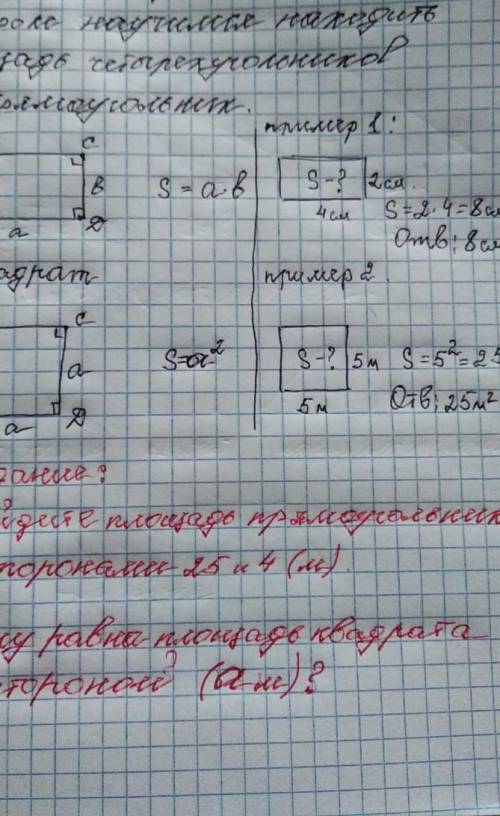 роке научимся находить
щадь четырехугольников
рямоугольник.
C
B
D
a
S = a·b
пример 1:
S-?
2см.
4см
S=2·4=8см
Отв: 8см
адрат
C
a
D
a
S=a²
пример 2.
S-?
5м
5м
S=5²=25
Отв: 25м²
тание:
йдите площадь прямоугольник
торонами 25 и 4 (м).
му равна площадь квадрата
стороной (a м)?